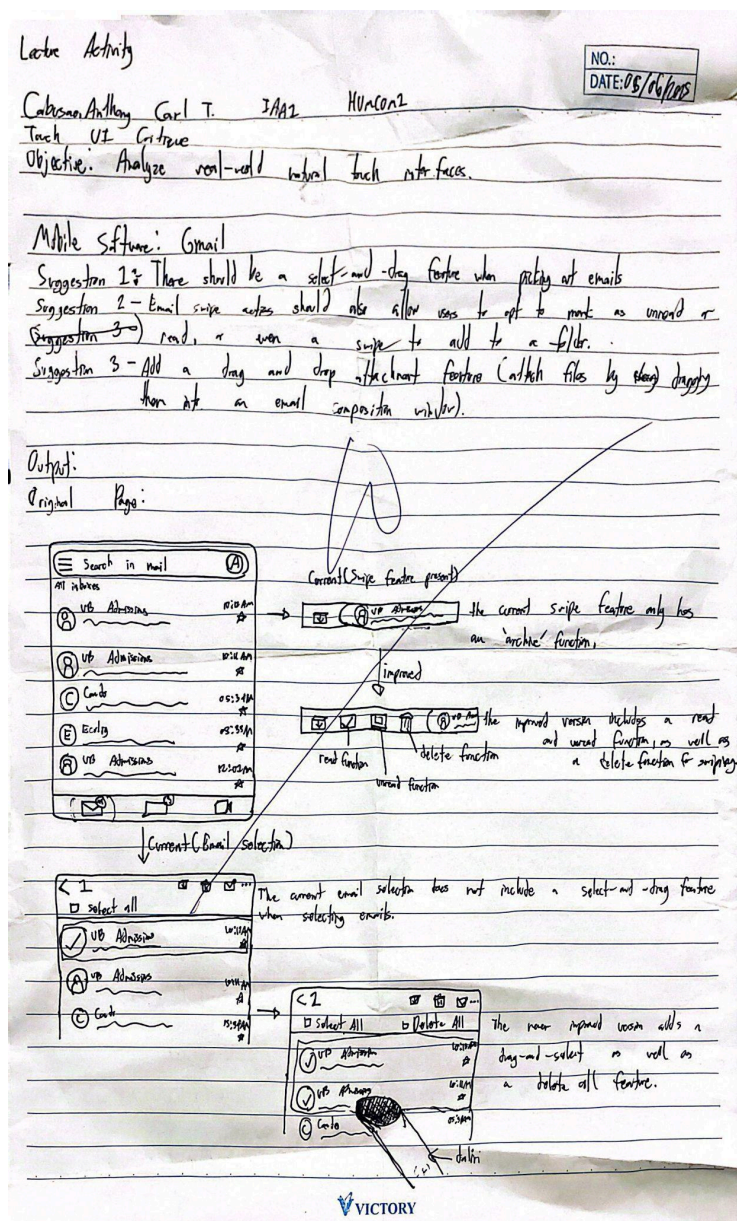 Lecture Activity
NO.:
DATE: 05/06/2025
Cabusao, Anthony Carl T. IAA1 HUMCOM2
Touch UI Critique
Objective: Analyze real-world natural touch interfaces.
Mobile Software: Gmail
Suggestion 1: There should be a select-and-drag feature when picking out emails
Suggestion 2 - Email swipe actions should also allow users to opt to mark as unread or
(Suggestion 3) read, or even a swipe to add to a folder.
Suggestion 3 - Add a drag and drop attachment feature (attach files by dragging
them into an email composition window).
Output:
Original Page:
Search in mail A
All inboxes
UB Admissions 10:10 AM
UB Admissions 10:11 AM
C
E
UB Admissions 12:02 AM
Current (Swipe feature present)
UB Admissions
the current swipe feature only has
an 'archive' function,
improved
the improved version includes a read
and unread function, as well as
a delete function for swiping
read function
unread function
delete function
Current (Email selection)
< 1
select all
UB Admission
UB Admissions
C
The current email selection does not include a select-and-drag feature
when selecting emails.
< 2
Select All Delete All
UB Admission
UB Admissions
C
The newer improved version adds a
drag-and-select as well as
a delete all feature.
VICTORY